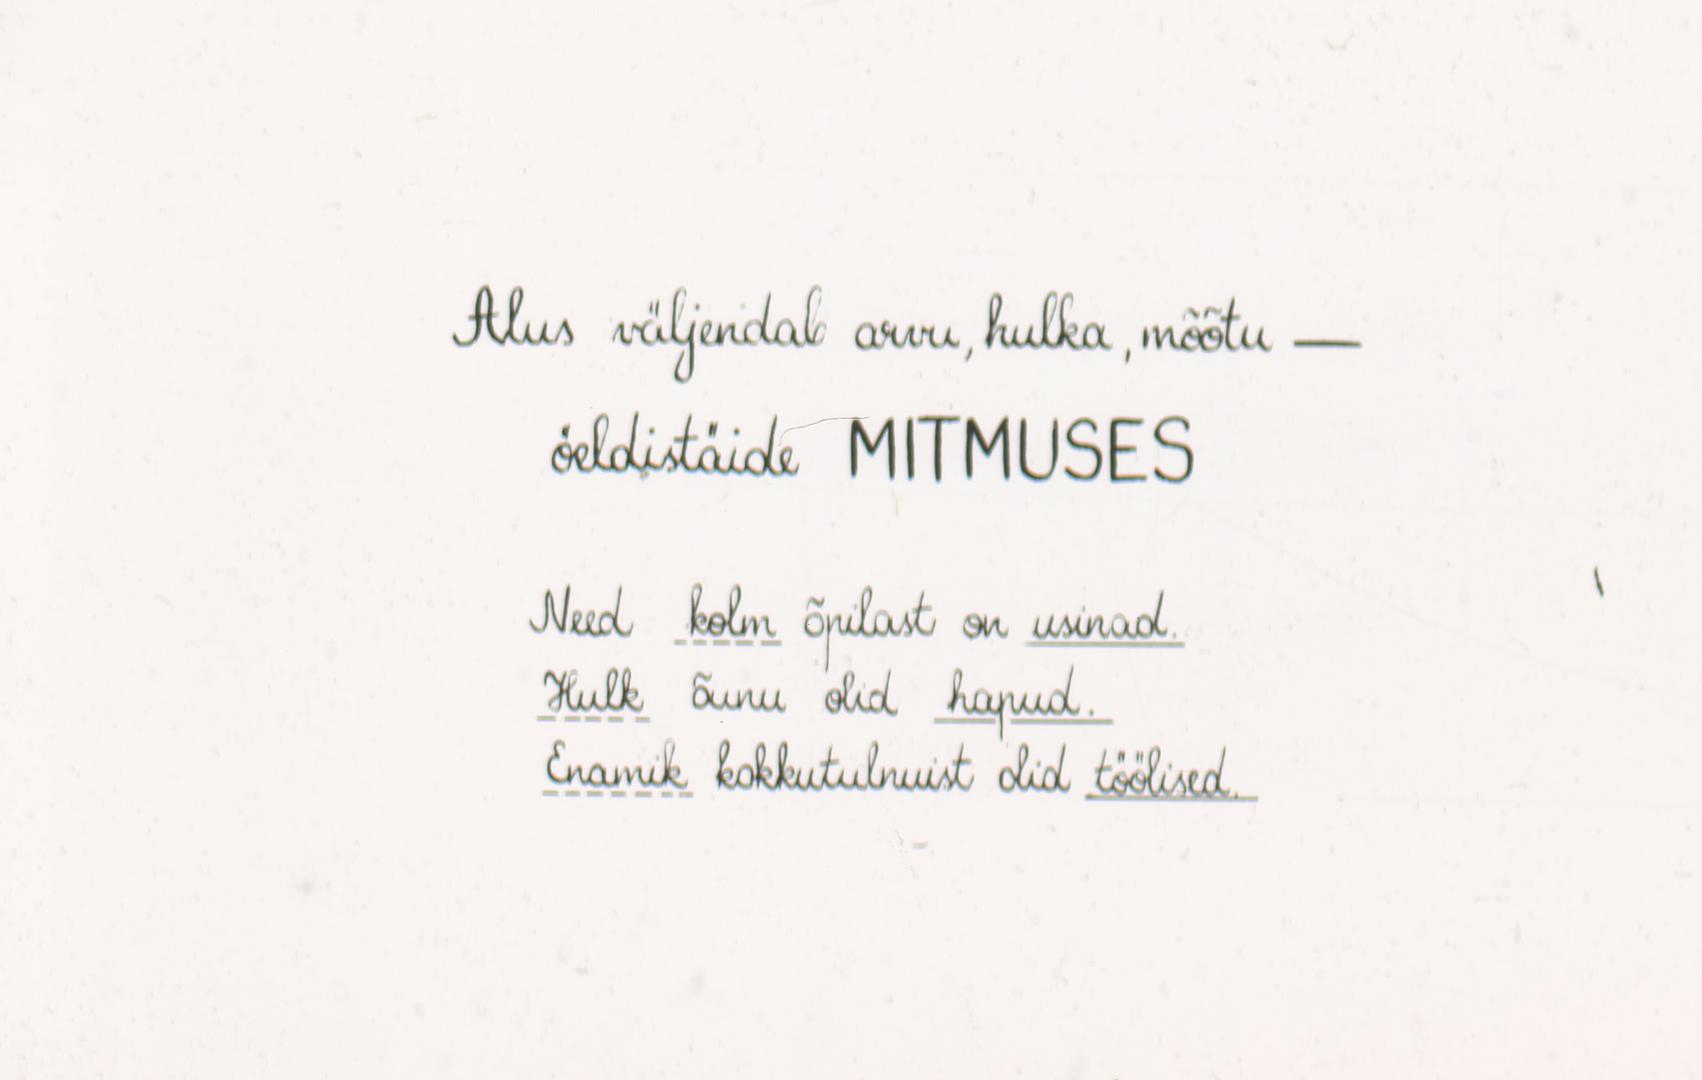 Alus väljendab arvu, hulka, mõõtu —
öeldistäide MITMUSES
Need kolm õpilast on usinad.
Hulk õunu olid hapud.
Enamik kokkutulnuist olid töölised.